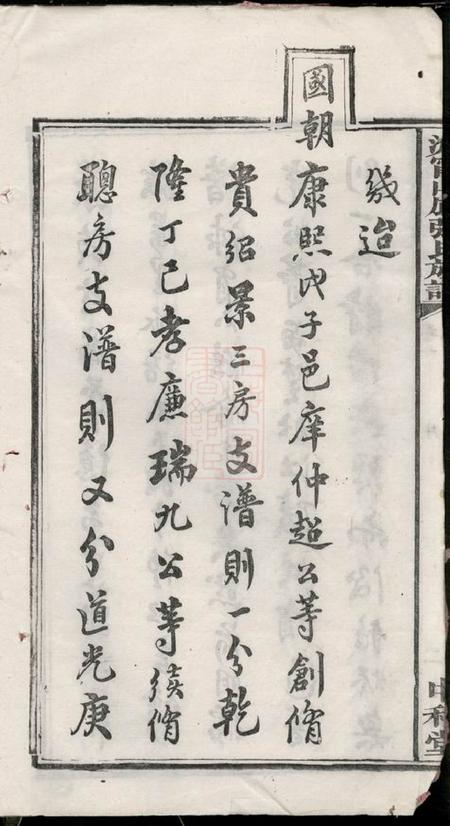 幾迨
國朝康熙戊子邑庠仲超公等創脩
貴紹景三房支譜則一分乾
隆丁巳孝廉瑞九公等續脩
聰房支譜則又分道光庚
張氏族譜
中和堂